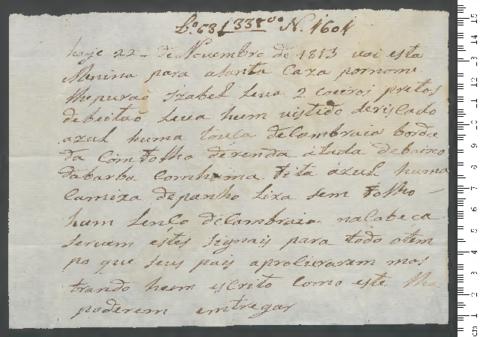 Lo 68 f 338vo N. 1601
hoje 22 - de Novembro de 1813 vai esta
Menina para aSanta Caza por nome
Izabel leva 2 coeiros pretos
debeitão leva hum vistido deriscado
azul huma toula deCambraia borda
da Com folho derenda atada debaixo
dabarba Comhuma fita azul huma
Camiza depanho liza sem folho
hum Lenco deCambraia naCabeca
servem estes signais para todo otem
po que seus pais aprocurarem mos
trando hum escrito como este lha
poderem entregar